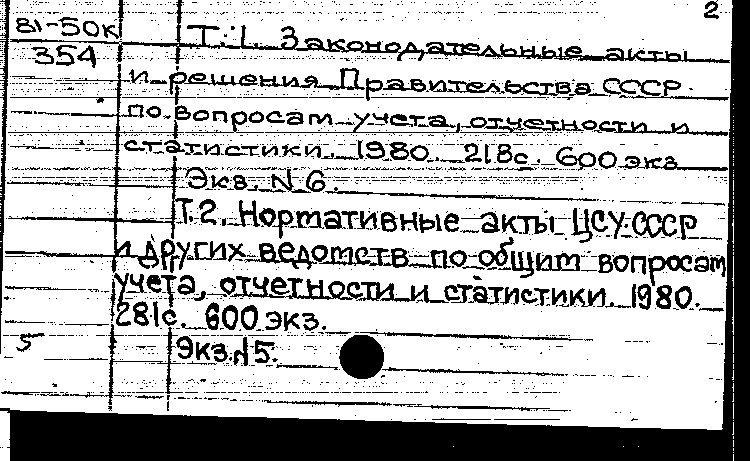 2
81-50к
354
Т.1. Законодательные акты
и решения Правительства СССР
по вопросам учета, отчетности и
статистики. 1980. 218с. 600 экз
Экз. N 6.
Т.2. Нормативные акты ЦСУ СССР
и других ведомств по общим вопросам
учета, отчетности и статистики. 1980.
281с. 600 экз.
5
Экз. N 5.